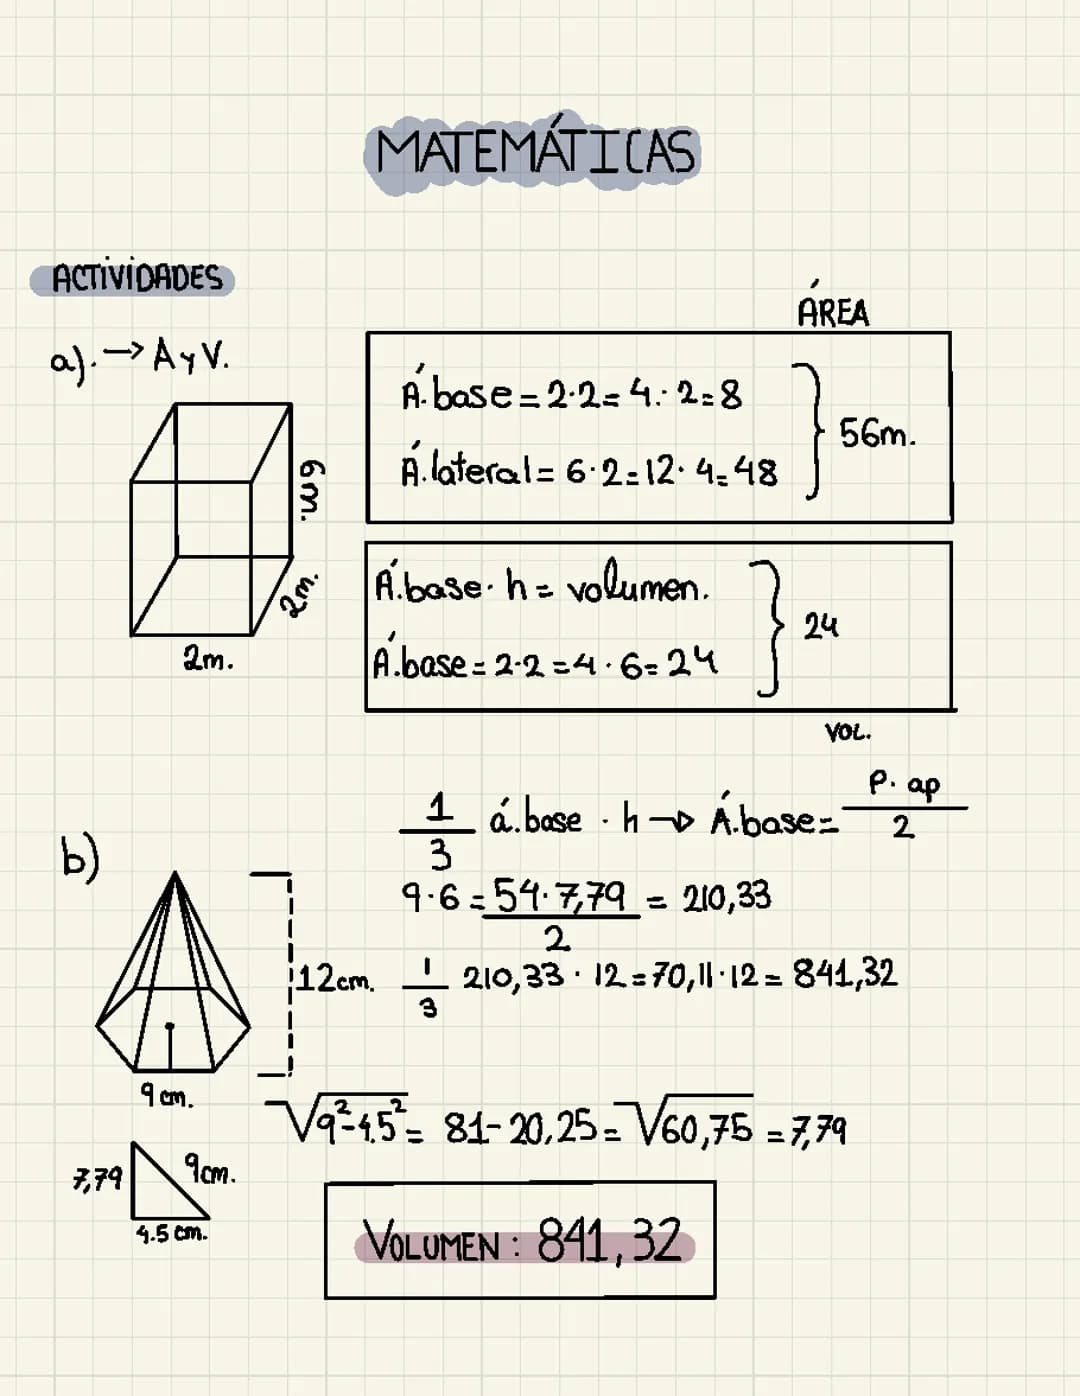 MATEMÁTICAS
ACTIVIDADES
a). → A y V.
6m.
2m.
2m.
ÁREA
Á.base = 2·2 = 4 · 2 = 8
Á.lateral = 6·2 = 12 · 4 = 48
56m.
Á.base · h = volumen.
Á.base = 2·2 = 4 · 6 = 24
24
VOL.
b)
12cm.
9 cm.
1/3 á.base · h → Á.base = P. ap/2
9·6 = 54·7,79/2 = 210,33
1/3 210,33 · 12 = 70,11·12 = 841,32
√9²-4,5² = 81-20,25 = √60,75 = 7,79
7,79
9cm.
4.5 cm.
VOLUMEN : 841,32